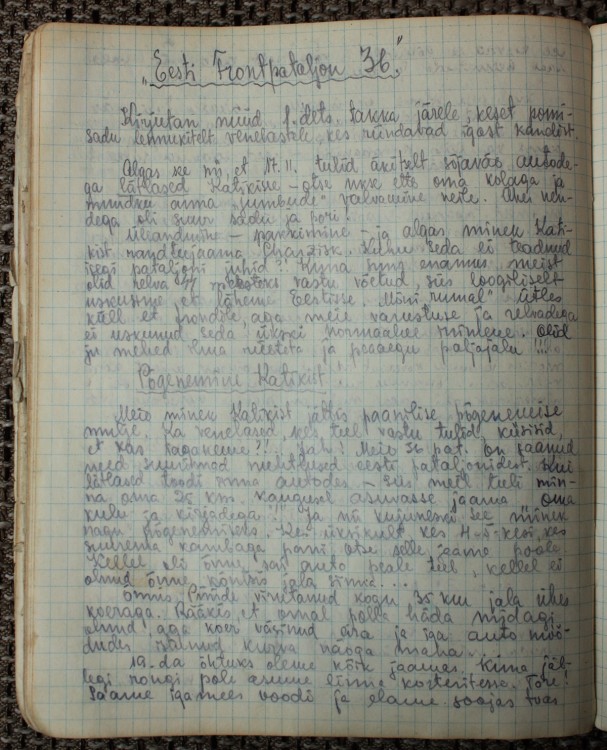 „Eesti Frontpataljon 36"
Kirjutan nüüd 1. dets. takka järele, keset pommi-
sadu lennukitelt venelastele, kes ründavad igast kandist.
Algas see nii, et 17. 11. tulid äkiselt sõjaväe autode-
ga lätlased Katikise – otse nukk ette oma kolaga ja
muudku anna „jumbude" valvamine neile. Ühe nen-
dega oli suur sadu ja pori.
Üleandmine – pakkimine – ja algas minek Kati-
kist raudteejaama Kuhu seda ei teadnud
isegi pataljoni juhid?! Kuna ning enamus meist
olid relva vastu võetud, siis loogiliselt
usuksime et läheme Eestisse. Mõni rumal ütles
küll et frondile, aga meie varustuse ja relvadega
ei uskunud seda ükski normaalne inimene. Olid
ju mehed ilma ja praaegu paljajalu!!!
Põgenemine Katikist
Meie minek Katikist jättis paanilise põgenemise
mulje. Ka venelased, kes teel vastu tulid, küsisid,
et kas taganeme?!.. Jah! Meie 36 pat. on saanud
need suurimad nuhtlused eesti pataljonidest. Kui
lätlased toodi sinna autodes – siis meil tuli min-
na oma 35 km. kaugusel asuvasse jaama oma
kulu ja kirjadega!! Ja nii kujunes see minek
nagu põgenemiseks. Kes üksikult kes 4-5 kesi, kes
suurema kambaga pani otse selle jaama poole.
Kellel oli õnne, sai auto peale teel, kellel ei
olnud õnne, kõmpis jala sinna...
Õnnis Piinde vinetanud kogu 35 km jala ühes
koeraga. Rääkis, et omal polla häda midagi
olnud, aga koer väsinud ära ja iga auto möö-
dudes istunud kurva näoga maha.
19-da õhtuks oleme kõik jaamas. Kuna jäl-
legi rongi pole asume linna korteritesse. Tore!
Saame iga mees voodi ja elame soojas toas